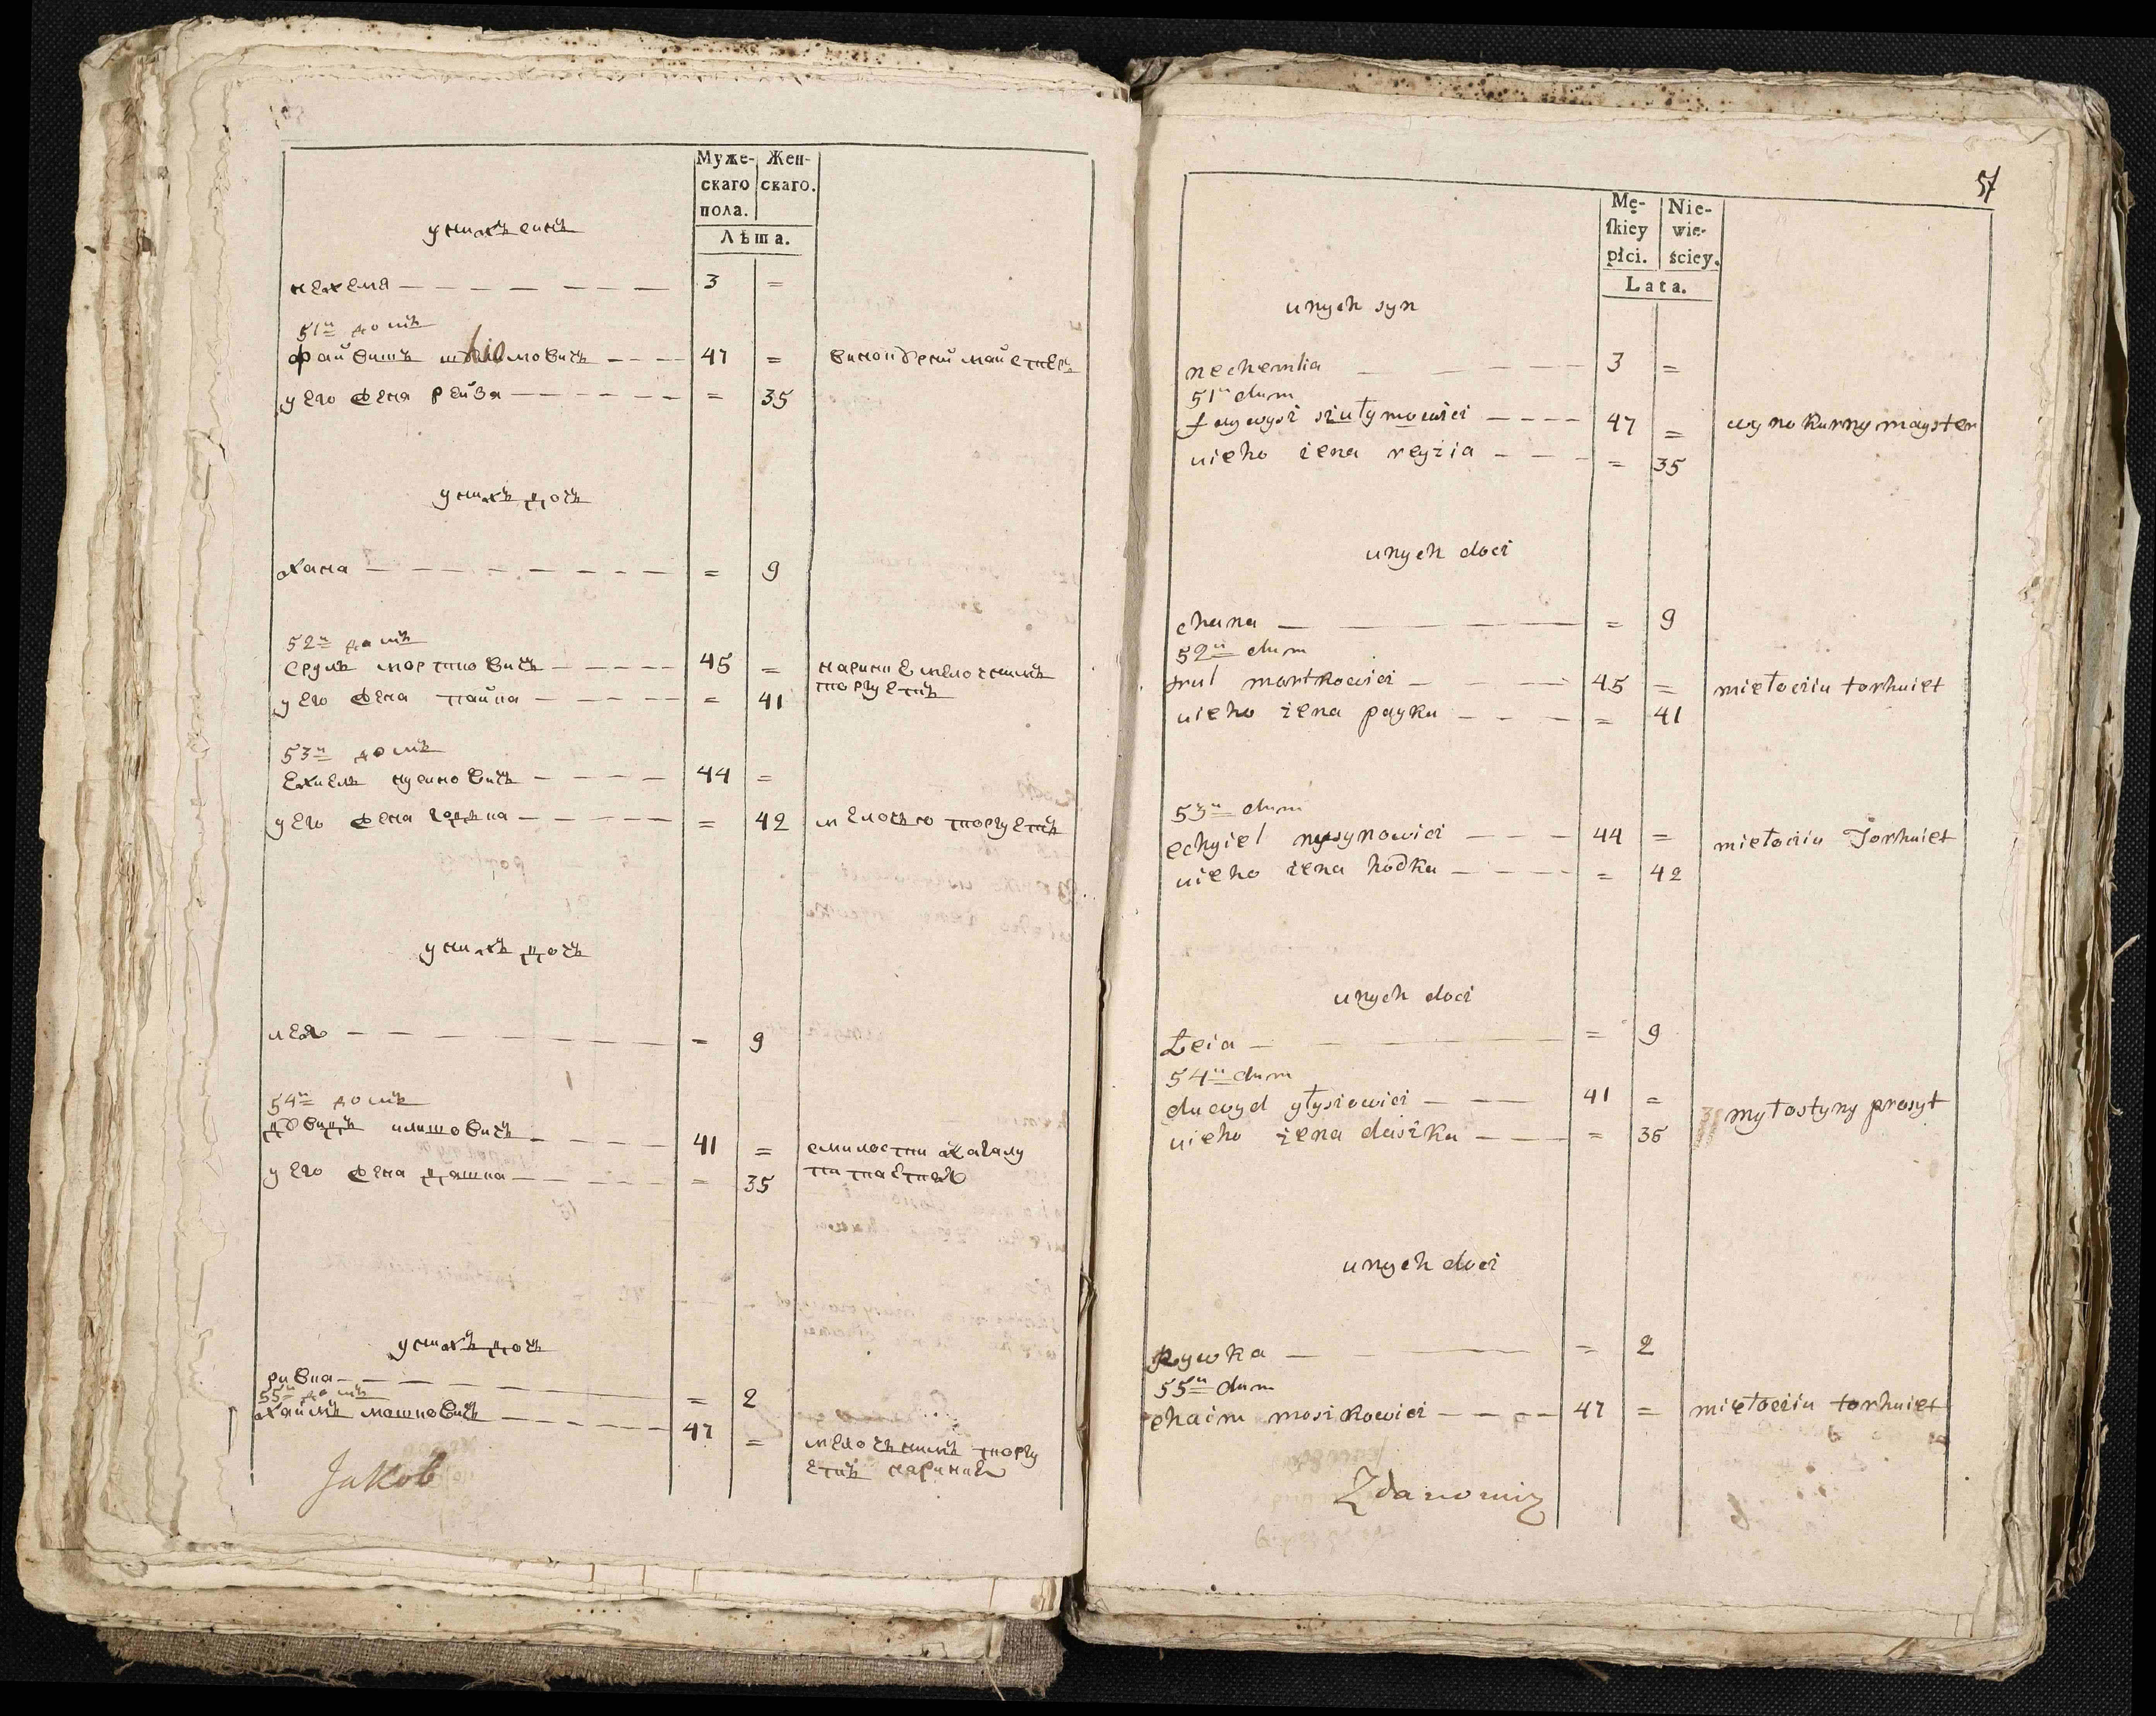 Муже-
скаго
пола.
Жен-
скаго.
Лѣта.
у нихъ синъ
нехемя — — — — — — — 3 =
51й домъ
файвишъ шлиомовичъ — — — 47 = винокурни майстеръ
у его жена рейза — — — — — — = 35
у нихъ дочъ
хана — — — — — — — — = 9
52й домъ
сруль мортковичъ — — — — — 45 = нарини мелочнимъ
у его жена пайка — — — — — = 41 торгуетъ
53й домъ
ехиель нусиновичъ — — — — 44 =
у его жена годька — — — — — = 42 мелочъю торгуетъ
у нихъ дочъ
лея — — — — — — — — = 9
54й домъ
довидъ илишовичъ — — — — 41 = смилости кагалу
у его жена дашка — — — — — = 35 питается
у нихъ дочъ
ривка — — — — — — — = 2
55й домъ
хаймъ мошковичъ — — — — — 47 = мелочънимъ торгу
етъ наринке
Jakob
57
Mę-
ſkiey
płci.
Nie-
wie-
ściey.
Lata.
unych syn
nechemlia — — — — — 3 =
51й dum
faywysz sziulymowicz — — — — 47 = wynokurny mayster
uieho żena reyzia — — — — = 35
unych docz
chana — — — — — = 9
52й dum
srul mortkowicz — — — — 45 = miełocziu torhuiet
uieho żena payka — — — — = 41
53й dum
echyiel nusynowicz — — — 44 = miełocziu Torhuiet
uieho żena hodka — — — — = 42
unych docz
Łeia — — — — — = 9
54й dum
dawyd ylyszowicz — — — 41 = myłostyny prosyt
uieho żena daszka — — — — = 35
unych docz
Rywka — — — — = 2
55й dum
chaim moszkowicz — — — — 47 = miełocziu torhuiet
Zdanowicz